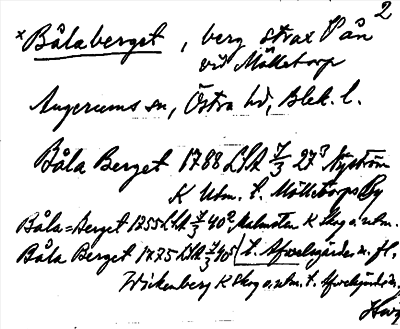 2
× Bålaberget, berg strax V ån
vid Mölletorp
Augerums sn, Östra hd, Blek. l.
Båla Berget 1788 LSA 7/3 27³ Nyström
K Utm. t. Mölletorps By
Båla=Berget 1755 LSA 7/3 40² Malmsten K Skog o. utm.
Båla Berget 1775 LSA 7/3 40⁵ t. Afvelsgärde m. fl.
Wickenberg K Skog o. utm. t. Afvelsgärde m.